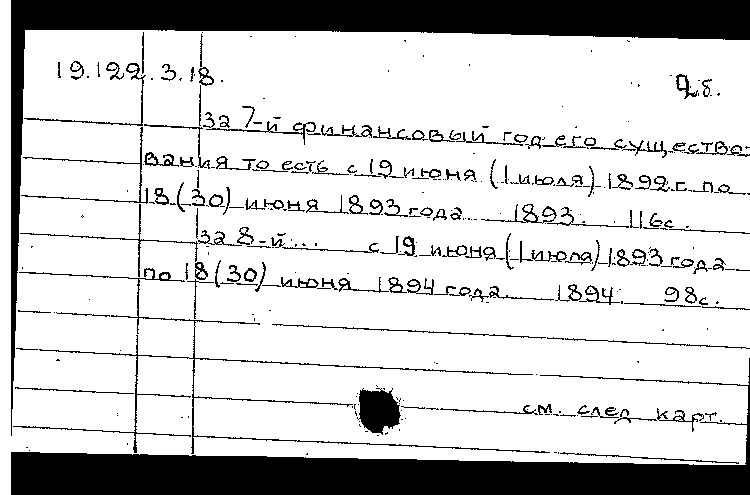 19.122.3.18.
2б.
за 7-й финансовый год его существо-
вания то есть с 19 июня (1 июля) 1892 г. по
18 (30) июня 1893 года 1893. 116с.
за 8-й... с 19 июня (1 июля) 1893 года
по 18 (30) июня 1894 года 1894. 98с.
см. след карт.